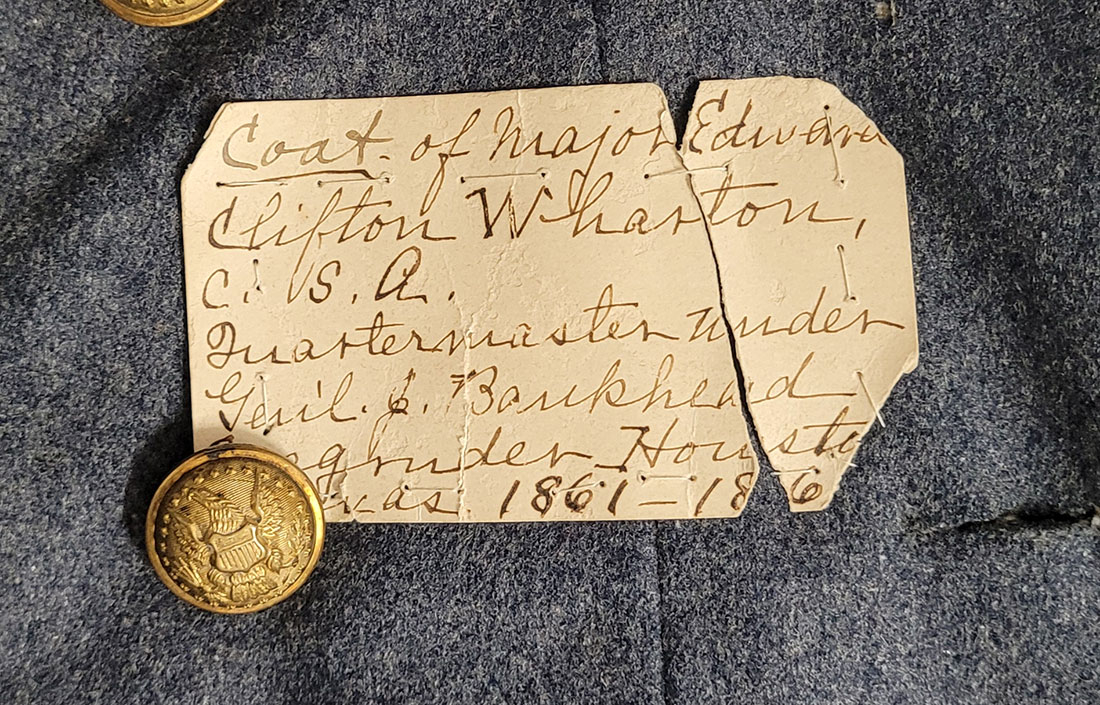 Coat. of Major Edward
Clifton Wharton,
C. S. A.
Quartermaster under
Gen'l. J. Bankhead
gruder Housto
xas 1861–186